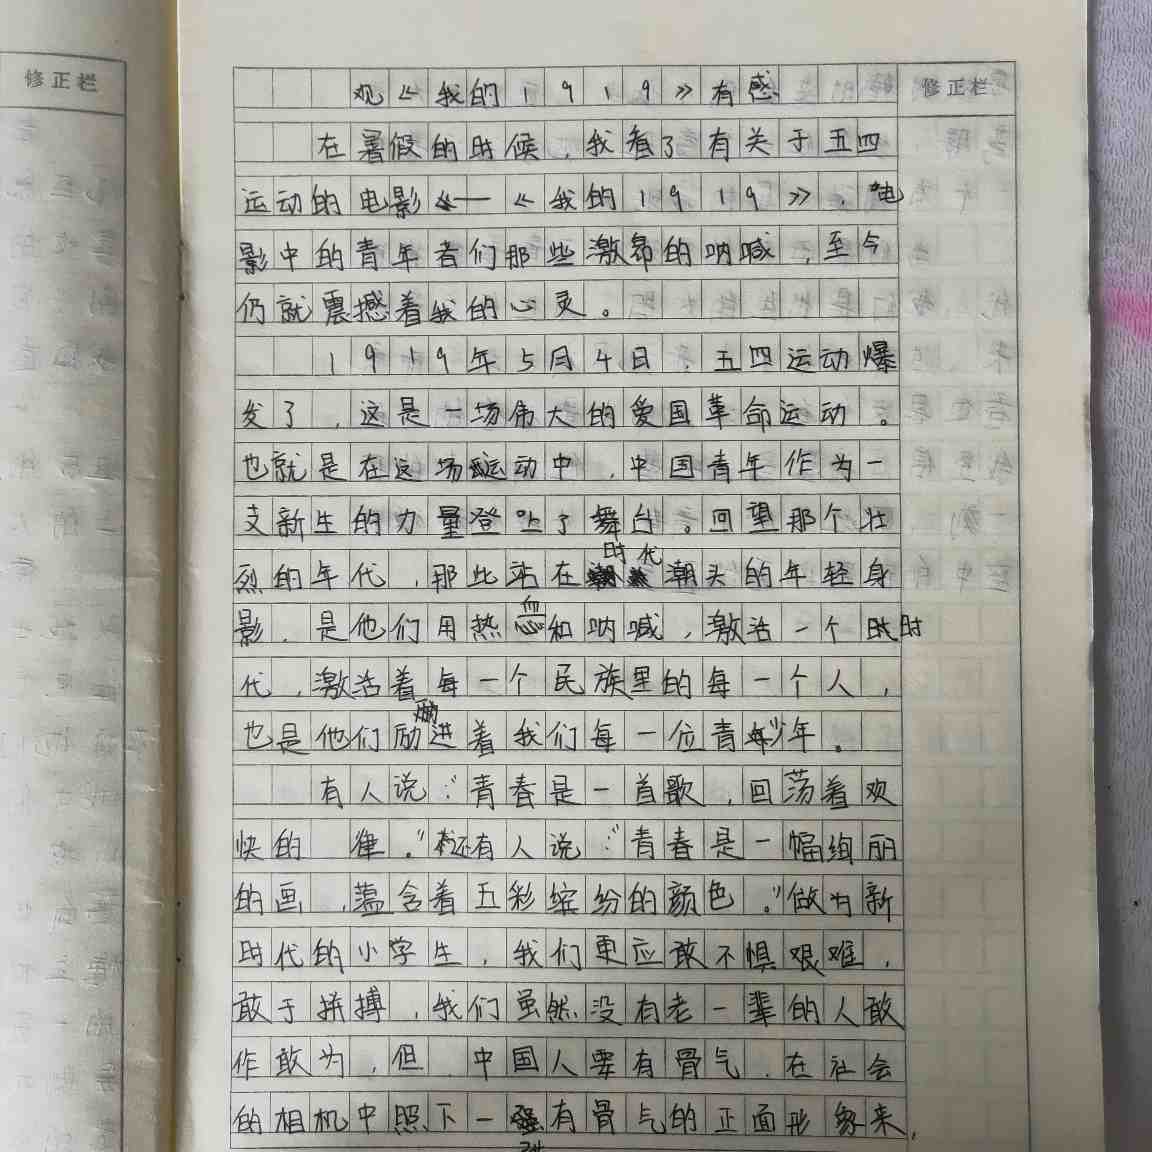 修正栏
修正栏
观《我的1919》有感
在暑假的时候，我看了有关于五四
运动的电影《—《我的1919》，电
影中的青年者们那些激昂的呐喊，至今
仍就震撼着我的心灵。
1919年5月4日，五四运动爆
发了，这是一场伟大的爱国革命运动。
也就是在这场运动中，中国青年作为一
支新生的力量登上了舞台。回望那个壮
烈的年代，那些站在时代潮头的年轻身
影，是他们用热血和呐喊，激活一个时
代，激活着每一个民族里的每一个人，
也是他们励进着我们每一位青少年。
有人说：“青春是一首歌，回荡着欢
快的 律。”还有人说：“青春是一幅绚丽
的画，蕰含着五彩缤纷的颜色。”做为新
时代的小学生，我们更应敢不惧艰难，
敢于拼搏，我们虽然没有老一辈的人敢
作敢为，但 中国人要有骨气，在社会
的相机中照下一 有骨气的正面形象来，